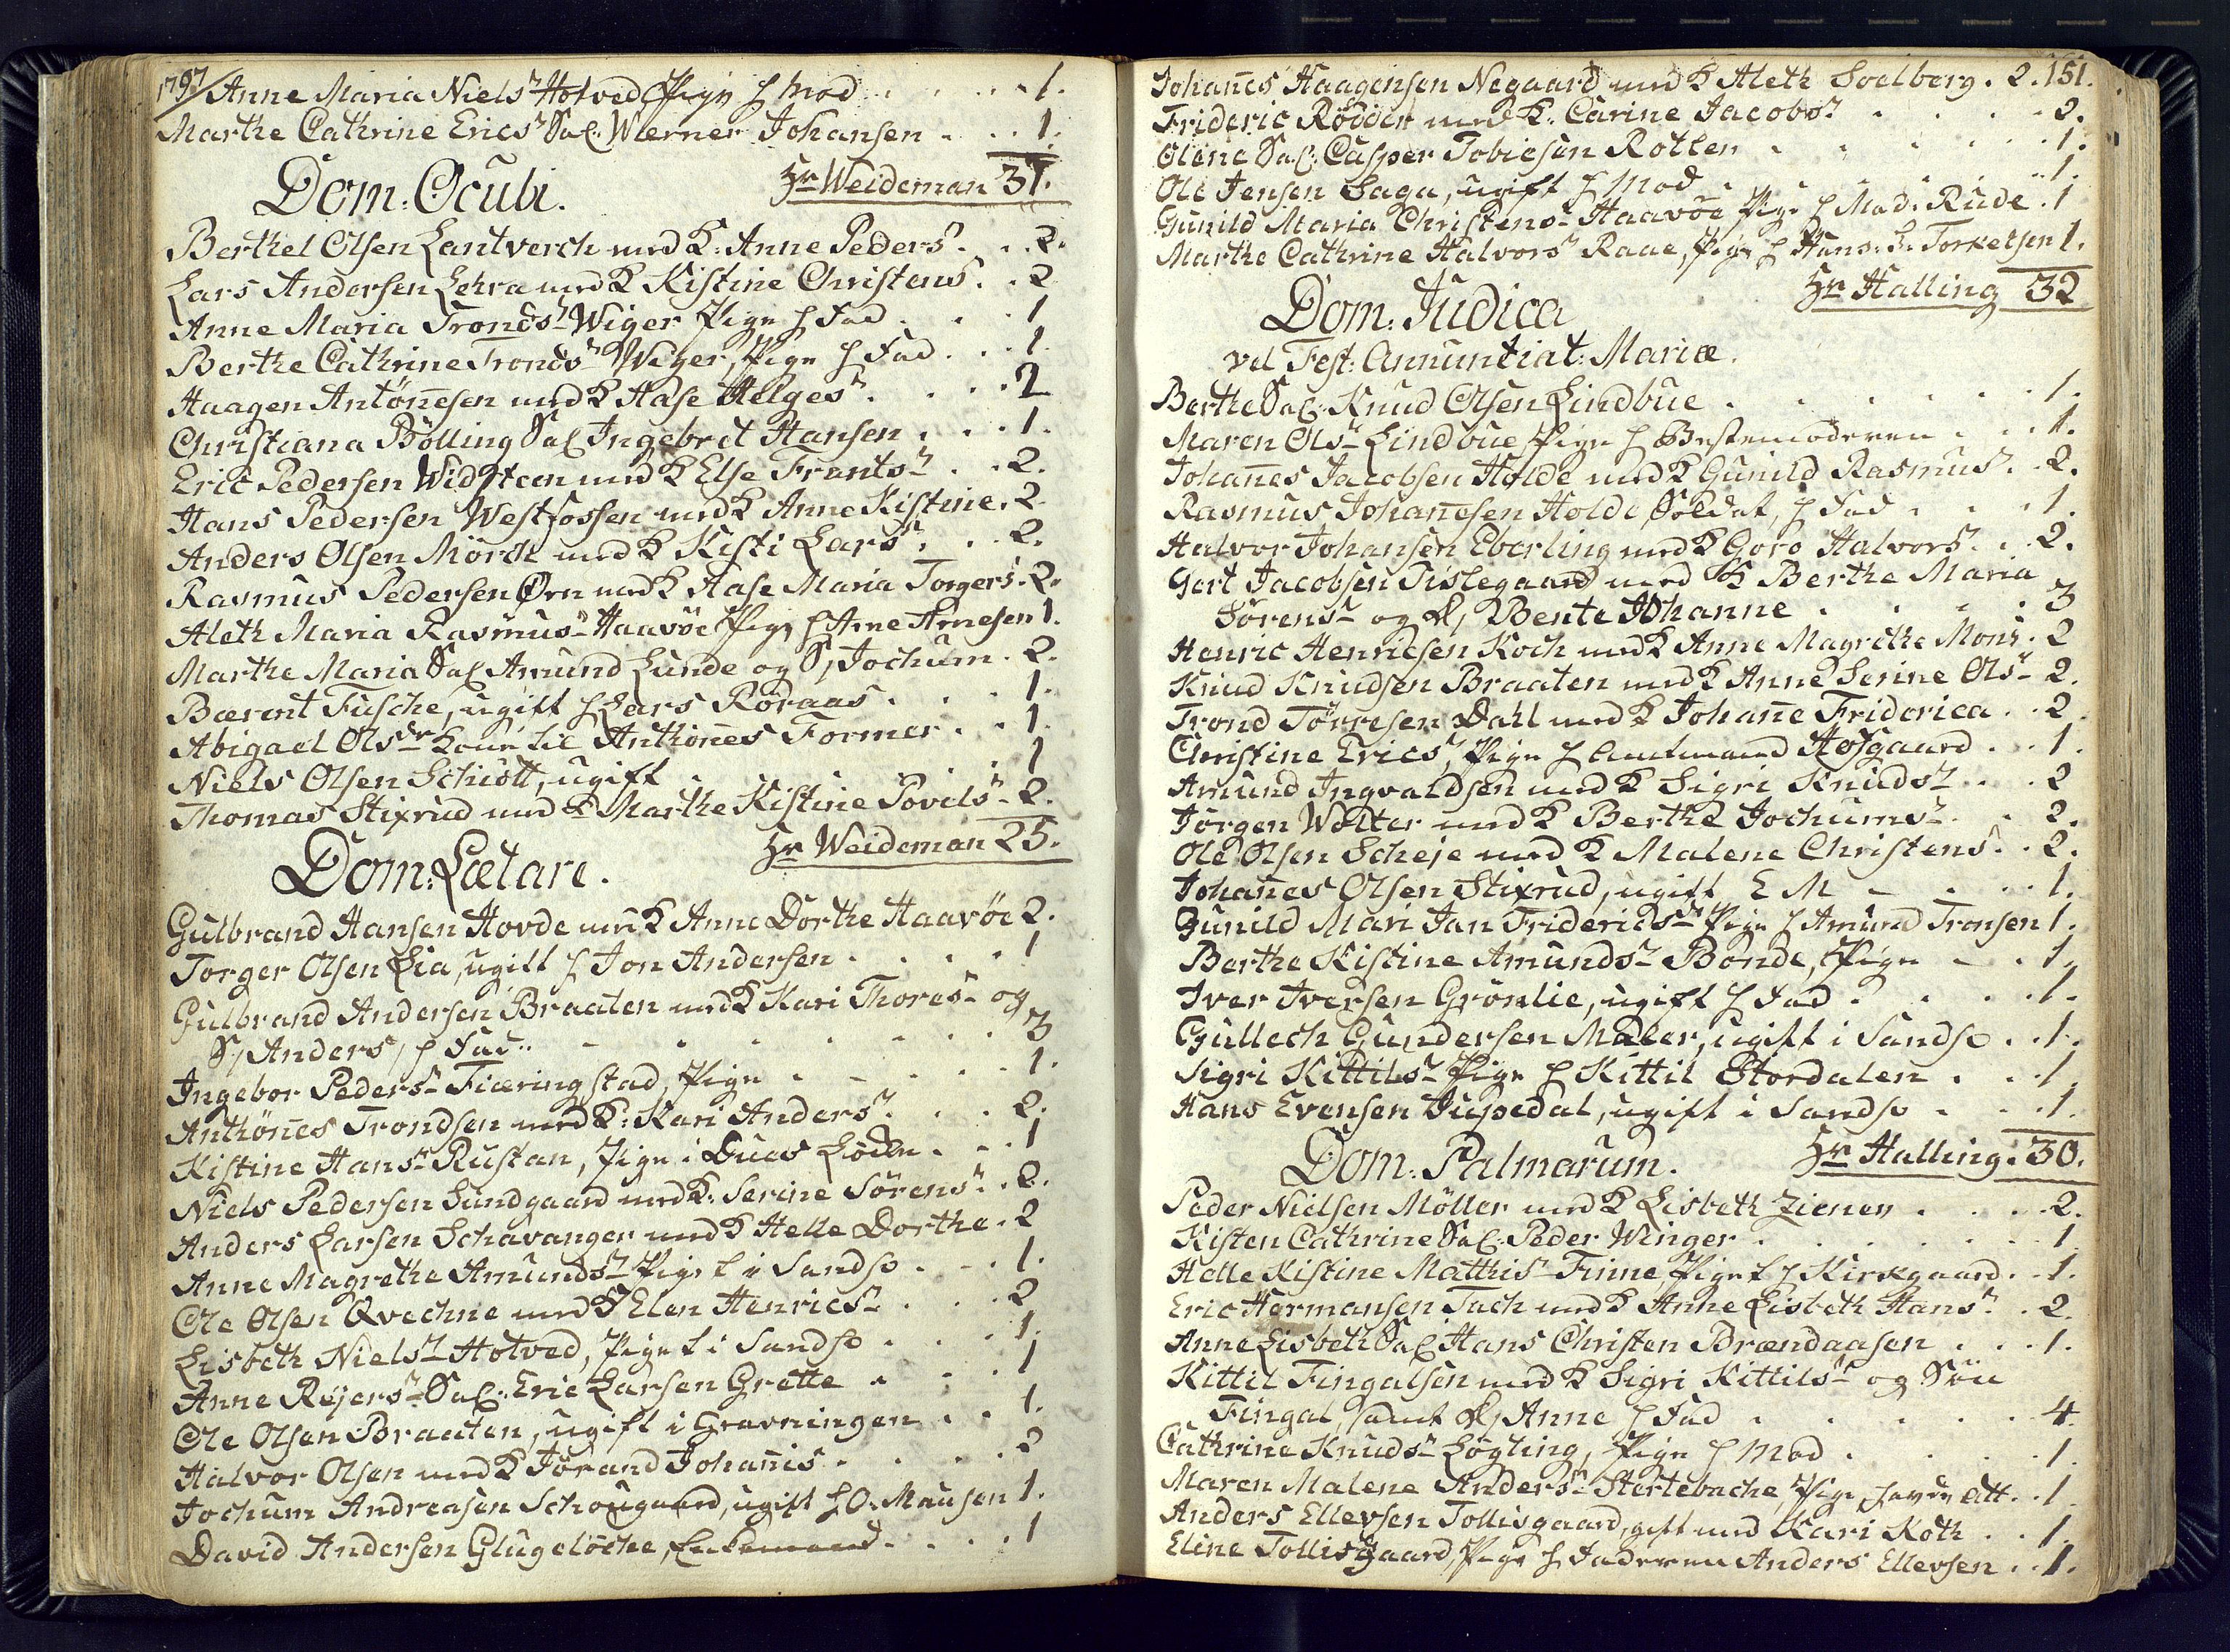 1797/ Anne Maria Niels- Hotved Pige h Mod . . . . 1.
Marthe Cathrine Erics- Sal. Werner Johansen . . . 1.
Hr Weideman 31.
Dom: Oculi.
Berthel Olsen Lantverch med K: Anne Peders- . . 2.
Lars Andersen Lehra med K Kistine Christens- . . 2
Anne Maria Tronds- Wiger Pige h Fad . . . 1
Berthe Cathrine Tronds- Wiger, Pige h Fad . . . 1.
Haagen Antönesen med K Aase Helges- . . . . 2
Christiana Bölling Sal Ingebret Hansen . . . 1.
Eric Pedersen Widsteen med K Else Frants- . . 2.
Hans Pedersen Westfossen med K Anne Kistine . 2.
Anders Olsen Mörch med K Kisti Lars- . . . 2.
Rasmus Pedersen Ørn med K Aase Maria Torgers- . 2.
Aleth Maria Rasmus- Haavöe Pige h Arne Arnesen 1.
Marthe Maria Sal Amund Lunde og S, Jochum . 2.
Bærent Fusche, ugift h Lars Röraas . . . . 1.
Abigael Olsdr Kone til Anthönes Former . . . 1.
Niels Olsen Schiött, ugift . . . . . 1
Thomas Stixrud med K Marthe Kistine Povels- 2.
Hr Weideman 25.
Dom: Lætare.
Gulbrand Hansen Hovde med K Anne Dorthe Haavöe 2.
Torger Olsen Lia, ugift h Jon Andersen . . . . 1
Gulbrand Andersen Braaten med K Kari Thores- og
S, Anders, h Fad . . . . . . . 3
Ingebor Peders- Fiæringstad, Pige . . . . . 1.
Anthönes Trondsen med K: Kari Anders- . . . 2.
Kistine Hans- Rustan, Pige i Dues Löken . . . 1
Niels Pedersen Sundgaard med K: Serine Sörens- . . 2.
Anders Larsen Schavanger med K Helle Dorthe . 2
Anne Magrethe Amunds- Pige i Sandsv . . . 1.
Ole Olsen Qvechne med K Elen Henrics- . . . 2
Lisbeth Niels- Hotved, Pige i Sandsv . . . . 1.
Anne Rejers- Sal. Eric Larsen Grette . . . . 1
Ole Olsen Braaten, ugift i Gravningen . . . 1.
Halvor Olsen med K Jörand Johañis . . . . 2
Jochum Andreasen Schougaard, ugift h O. Mausen 1.
David Andersen Glugelöche, Enkemand . . . . 1
151.
Johañes Haagensen Negaard med K Aleth Soelberg . 2.
Frideric Rödder med K. Carine Jacobs- . . . . 2.
Olene Sal: Casper Tobiesen Rollen . . . . . 1.
Ole Jensen Saga, ugift h Mod . . . . . 1.
Gunild Maria Christens- Haavöe Pige h Mad. Rude . 1
Marthe Cathrine Halvors- Raae, Pige h Hans L. Torkelsen 1.
Hr Halling 32
Dom: Judica
vel Fest: Annuntiat: Mariæ.
Berthe Sal: Knud Olsen Lindbue . . . . . . 1.
Maren Ols- Lindbue, Pige h Bestemoderen . . . 1.
Johañes Jacobsen Holde med K Gunild Rasmus- . . 2.
Rasmus Johañesen Holde, Soldat, h Fad . . . 1.
Halvor Johansen Eberling med K Goro Halvors- . . 2.
Gort Jacobsen Tislegaard med K Berthe Maria
Sörens- og D, Bente Johanne . . . . 3
Henric Henricsen Koch med K Anne Magrethe Mons- . 2
Knud Knudsen Braaten med K Anne Serine Ols- 2.
Trond Törresen Dahl med K Johañe Friderica . . 2
Christine Erics-, Pige h Amtmand Aosgaard . . . 1.
Amund Ingvaldsen med K Sigri Knuds- . . . 2
Jörgen Wolter med K Berthe Jochums- . . 2.
Ole Olsen Scheje med K Malene Christens- . . 2.
Johañes Olsen Stixrud, ugift E M - . . . 1.
Gunild Mari Jan Fridericsdr Pige h Amund Tronsen 1.
Berthe Kistine Amunds- Bonde, Pige . . . 1.
Iver Iversen Grönlie, ugift h Fad . . . . 1.
Gullech Gundersen Maler, ugift i Sandsv . . 1.
Sigri Kittils- Pige h Kittil Stordalen . . . 1.
Hans Evensen Juspedal, ugift i Sandsv . . . 1.
Hr Halling . 30.
Dom: Palmarum.
Peder Nielsen Möller med K Lisbeth Ziener . . . 2.
Kisten Cathrine Sal: Peder Winger . . . . . . 1
Helle Kistine Matthis- Finne, Pige h Kirkgaard . . 1.
Eric Hermansen Tuch med K Anne Lisbeth Hans- . . 2.
Anne Lisbeth Sal Hans Christen Brændaasen . . . 1.
Kittil Fingalsen med K Sigri Kittils- og Sön
Fingal, samt D, Anne h Fad . . . . . 4.
Cathrine Knuds- Lögting, Pige h Mod . . . . 1.
Maren Malene Anders- Stertebache, Pige, Att . . 1
Anders Ellevsen Tollisgaard, gift med Kari Koth . . 1.
Eline Tollisgaard, Pige h Faderen Anders Ellevsen . . 1.